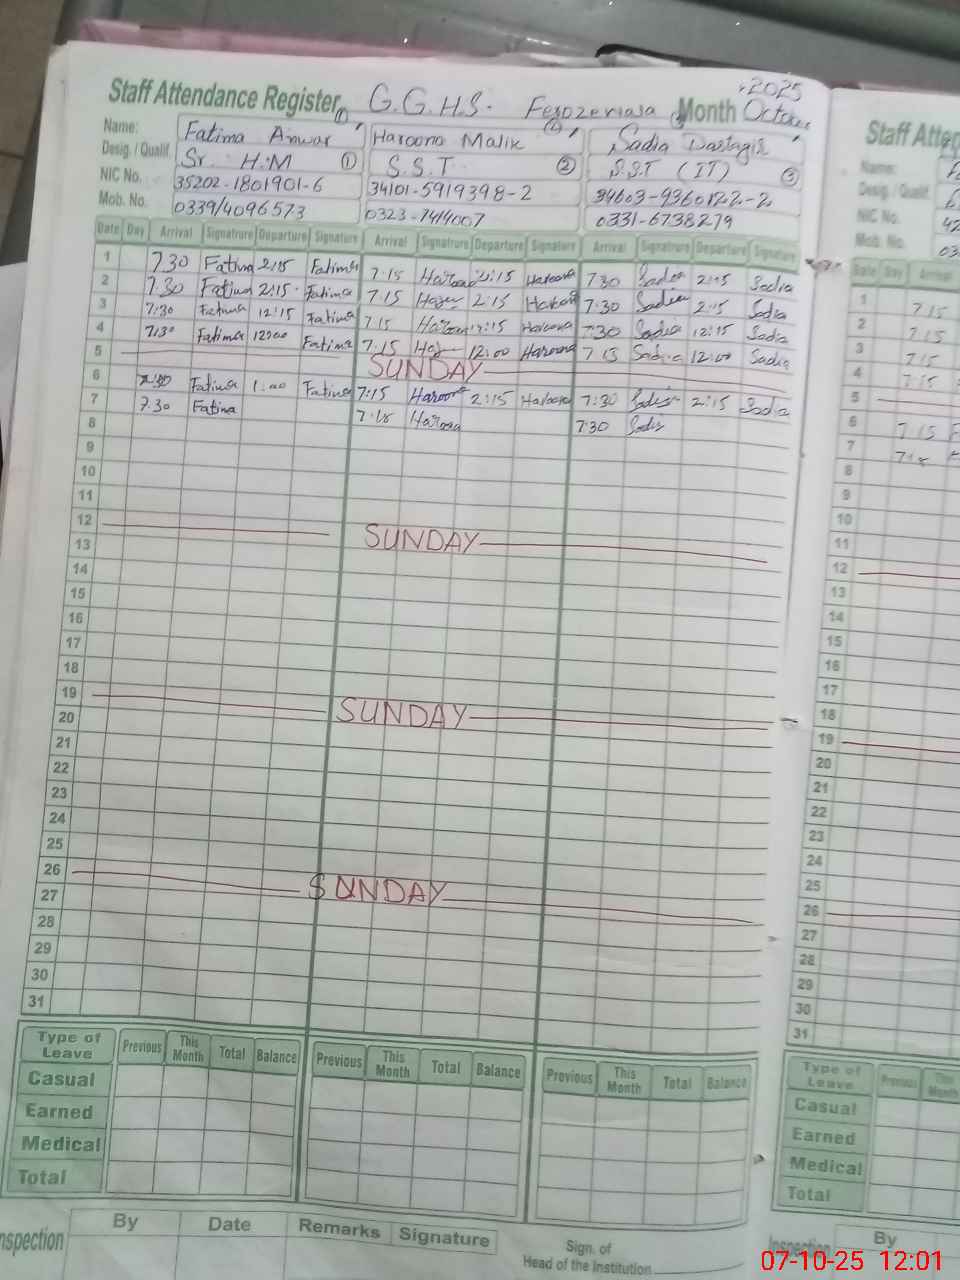 Staff Attendance Register G.G.H.S. Month October 2025
Name: Fatima Anwar Haroona Malik Sadia Dastagir
Desig. / Qualif. Sr. H.M 1 S.S.T. 2 S.S.T (IT) 3
NIC No. 35202-1801901-6 34101-5919398-2
Mob. No. 0339/4096573 0323-7414007 0331-6738279
Date Day Arrival Signatrure Departure Signature Arrival Signatrure Departure Signature Arrival Signatrure Departure Signature
1 7 30 Fatima 2:15 Fatima 7:15 Haroona 2:15 Haroona 7:30 Sadia 2:15 Sadia
2 7.30 Fatima 2:15 Fatima 7:15 2:15 Haroona 7:30 Sadia 2:15 Sadia
3 7:30 Fatima 12:15 Fatima 7 15 Haroona 12:15 Haroona 7:30 Sadia 12:15 Sadia
4 7:30 Fatima 12:00 Fatima 7:15 12:00 Haroona 7 15 Sadia 12:00 Sadia
5 SUNDAY
6 7:30 Fatima 1:00 Fatima 7:15 Haroona 2:15 Haroona 7:30 Sadia 2:15 Sadia
7 7.30 Fatima 7:15 Haroona 7:30 Sadia
8
9
10
11
12 SUNDAY
13
14
15
16
17
18
19 SUNDAY
20
21
22
23
24
25
26 SUNDAY
27
28
29
30
31
Type of Leave Previous This Month Total Balance Previous This Month Total Balance Previous This Month Total Balance
Casual
Earned
Medical
Total
Inspection By Date Remarks Signature
Sign. of
Head of the Institution
Staff Atten
Name:
Desig. / Qualif.
NIC No. 42
Mob. No. 03
Date Day Arrival
1 7 15
2 7:15
3 7:15
4 7:15
5
6 7:15
7
8
9
10
11
12
13
14
15
16
17
18
19
20
21
22
23
24
25
26
27
28
29
30
31
Type of Leave Previous This Month
Casual
Earned
Medical
Total
Inspection By
07-10-25 12:01